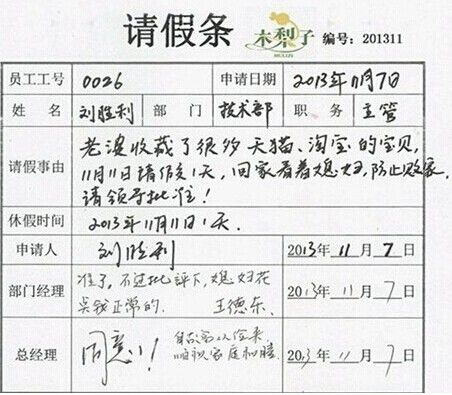 请假条 木梨子 MULIZI 编号：201311
员工工号 0026 申请日期 2013年11月7日
姓名 刘胜利 部门 技术部 职务 主管
请假事由 老婆收藏了很多天猫、淘宝的宝贝，
11月11日请假1天，回家看着媳妇，防止败家，
请领导批准！
休假时间 2013年11月11日1天。
申请人 刘胜利 2013年11月7日
部门经理 准了，不过批评下，媳妇花
吴钱正常的。 王德东 2013年11月7日
总经理 同意！ 自古穷从俭来
2013年11月7日